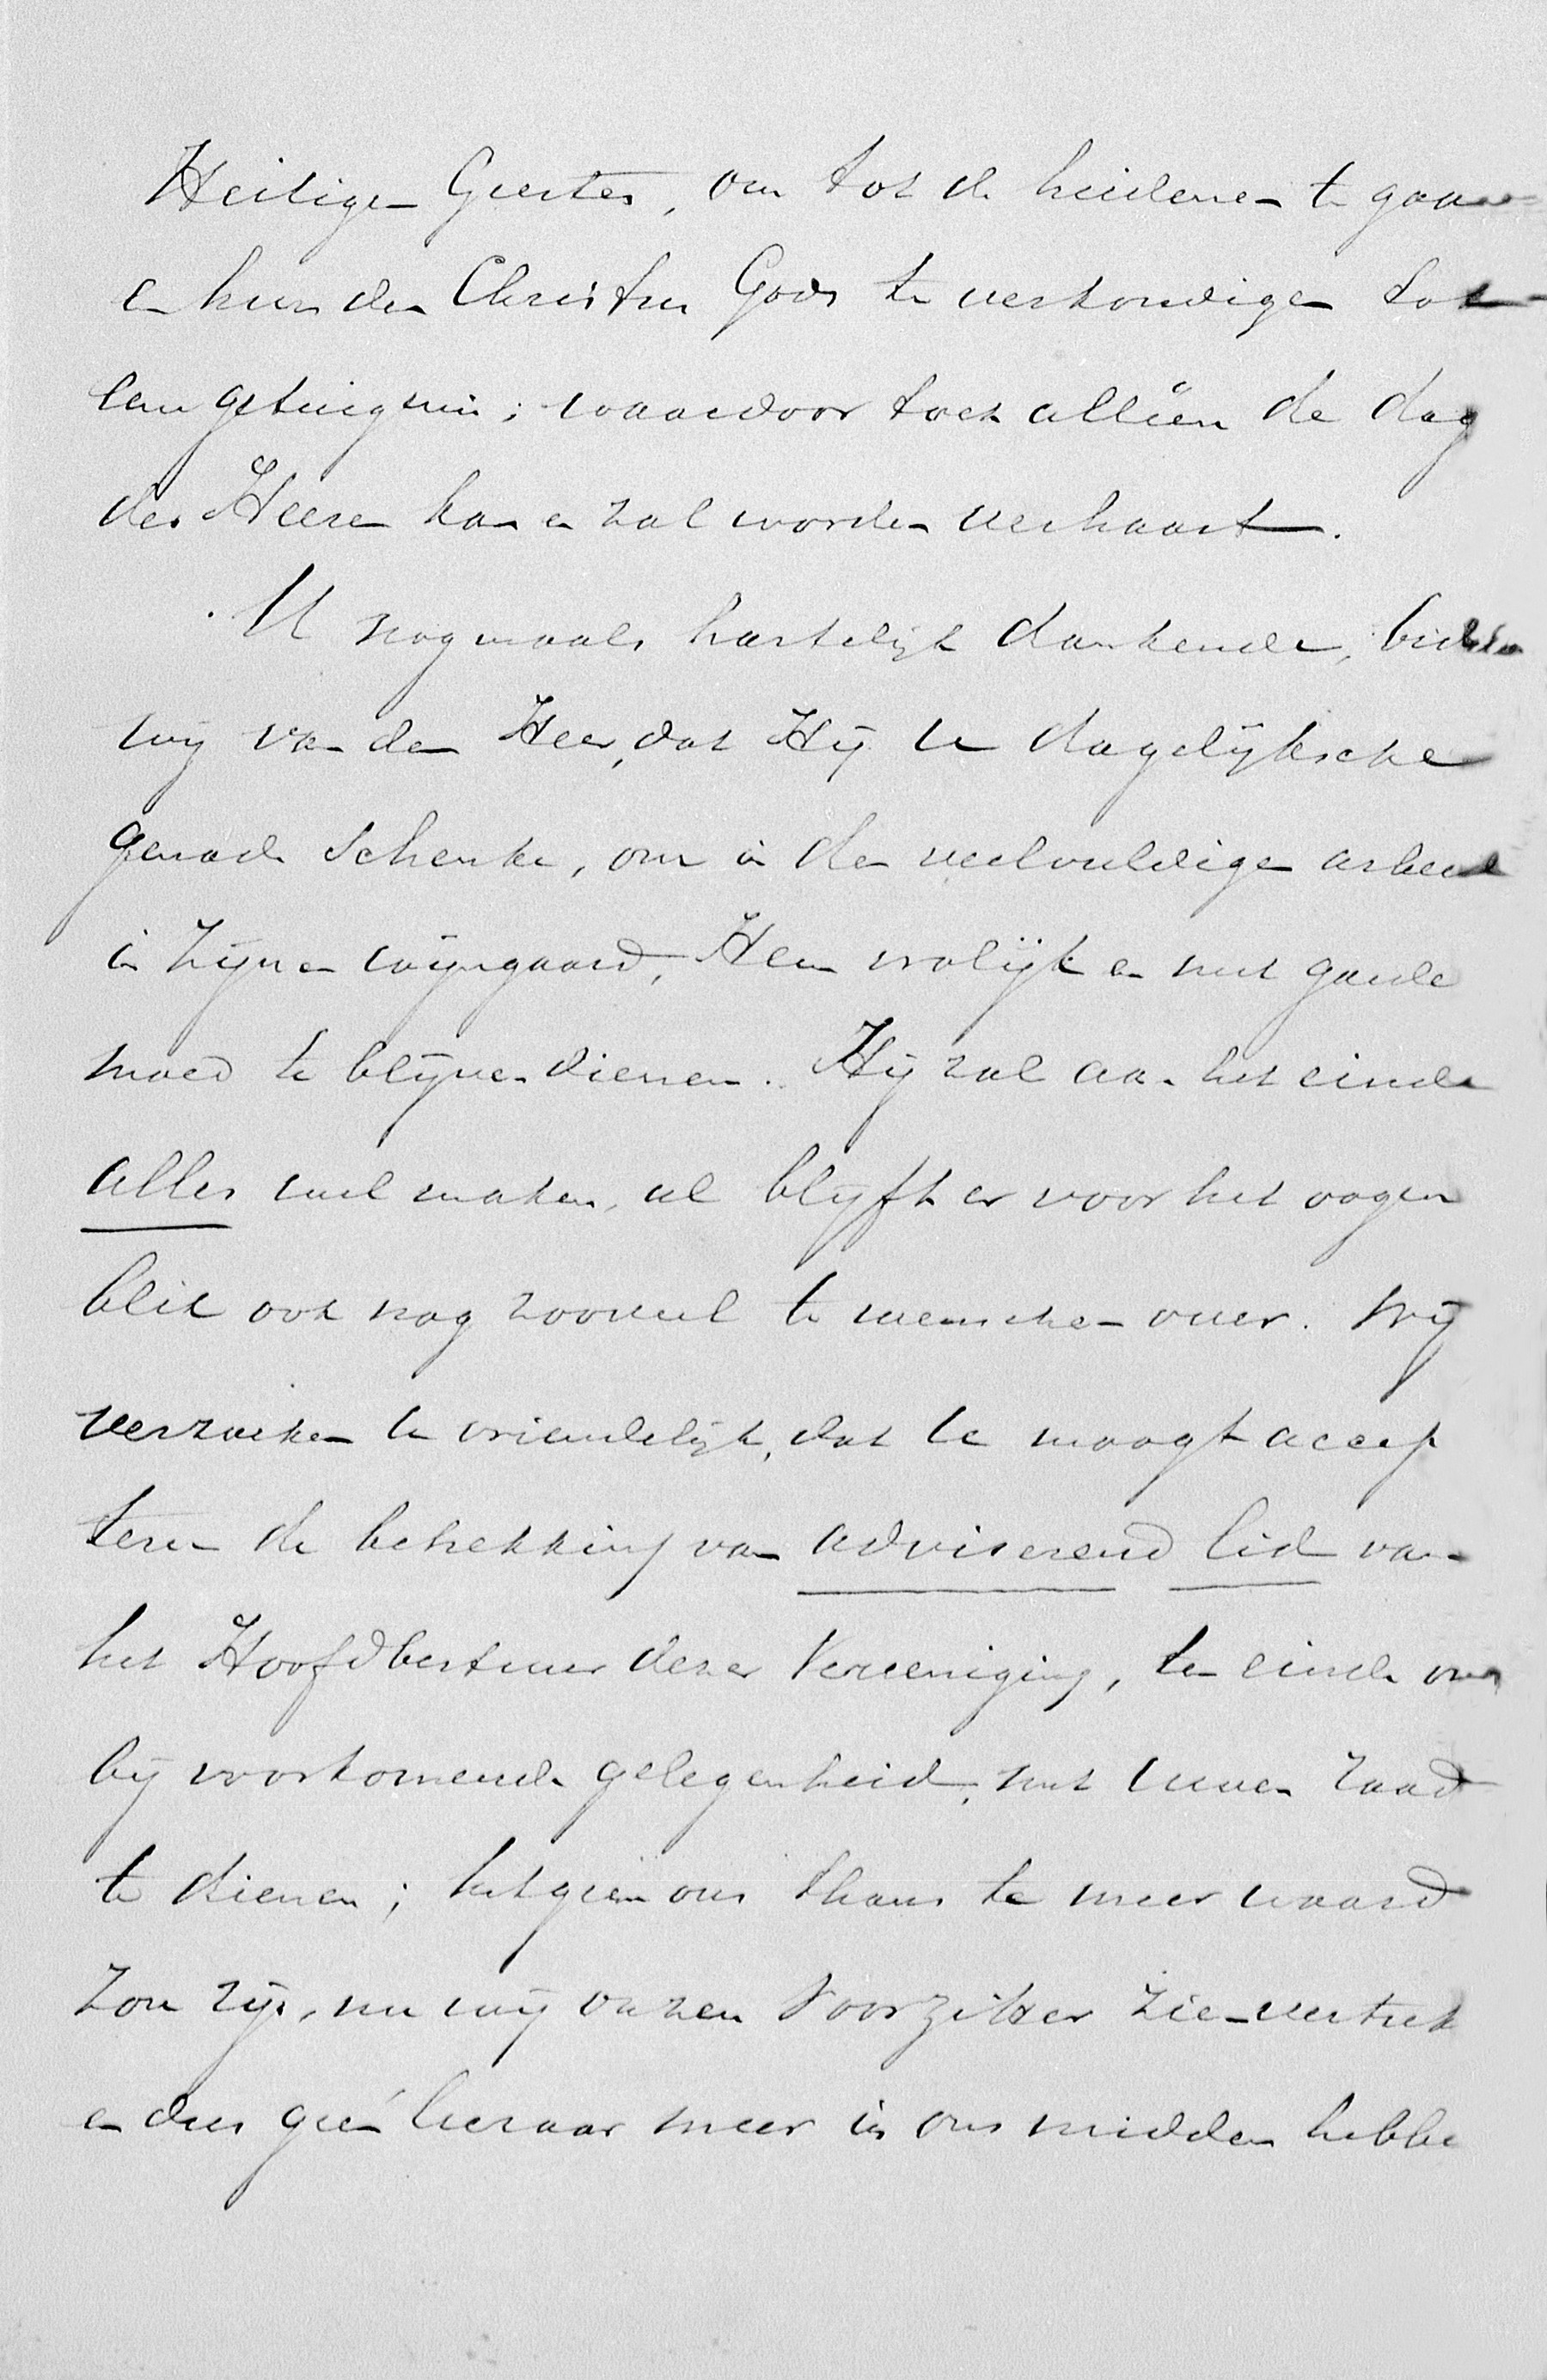 Heiligen Geestes, om tot de heidenen te gaan
en hun den Christus Gods te verkondigen tot
een getuigenis; waardoor toch alléén de dag
des Heeren kan en zal worden verhaast.
U nogmaals hartelijk dankende, bidden
wij van den Heer, dat Hij U dagelijksche
genade schenke, om in den veelvuldigen arbeid
in Zijnen wijngaard, Hem vrolijk en met goede
moed te blijven dienen. Hij zal aan het einde
alles wel maken, al blijft er voor het oogen
blik ook nog zooveel te wenschen over. Wij
verzoeken U vriendelijk, dat U moogt accep
teren de betrekking van adviserend lid van
het Hoofdbestuur dezer Vereeniging, ten einde ons
bij voorkomende gelegenheid, met uwen raad
te dienen; hetgeen ons thans te meer waard
zou zijn, nu wij onzen Voorzitter zien vertrek
en dus geen leeraar meer in ons midden hebbe